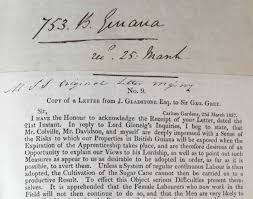 753. B. Guiana
25. March
No. 9.
COPY of a LETTER from J. GLADSTONE Esq. to SIR GEO. GREY.
Carlton Gardens, 23d March 1837.
Sir,
I HAVE the Honour to acknowledge the Receipt of your Letter, dated the
21st Instant. In reply to Lord Glenelg's Inquiries, I beg to state, that
Mr. Colvile, Mr. Davidson, and myself are deeply impressed with a Sense of
the Risk to which our Properties in British Guiana will be exposed when the
Expiration of the Apprenticeship takes place, and are therefore desirous of an
Opportunity to explain our Views to his Lordship, as well as to point out such
Measures as appear to us as desirable to be adopted in order, as far as it is
possible, to avert them. Unless a System of regular continuous Labour is then
adopted, the Cultivation of the Sugar Cane cannot then be carried on to a
productive Result. To effect this Object serious Difficulties present them-
selves. It is apprehended that the Female Labourers who now work in the
Field will not then continue to do so, and that the Men are very likely to